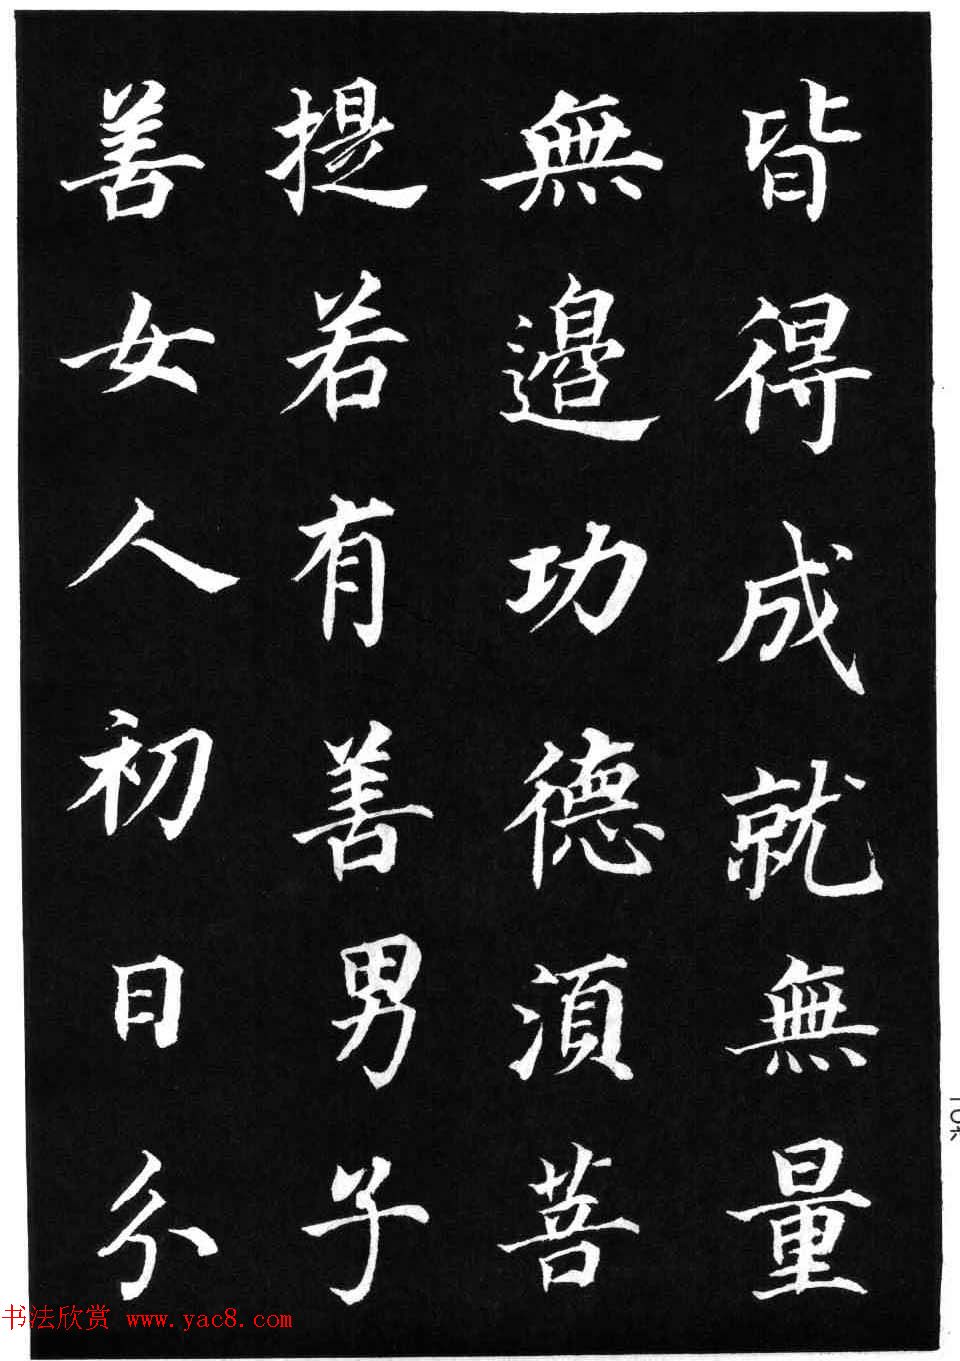 皆得成就無量
無邉功德湏菩
提若有善男子
善女人初日分
一〇六
书法欣赏 www.yac8.com